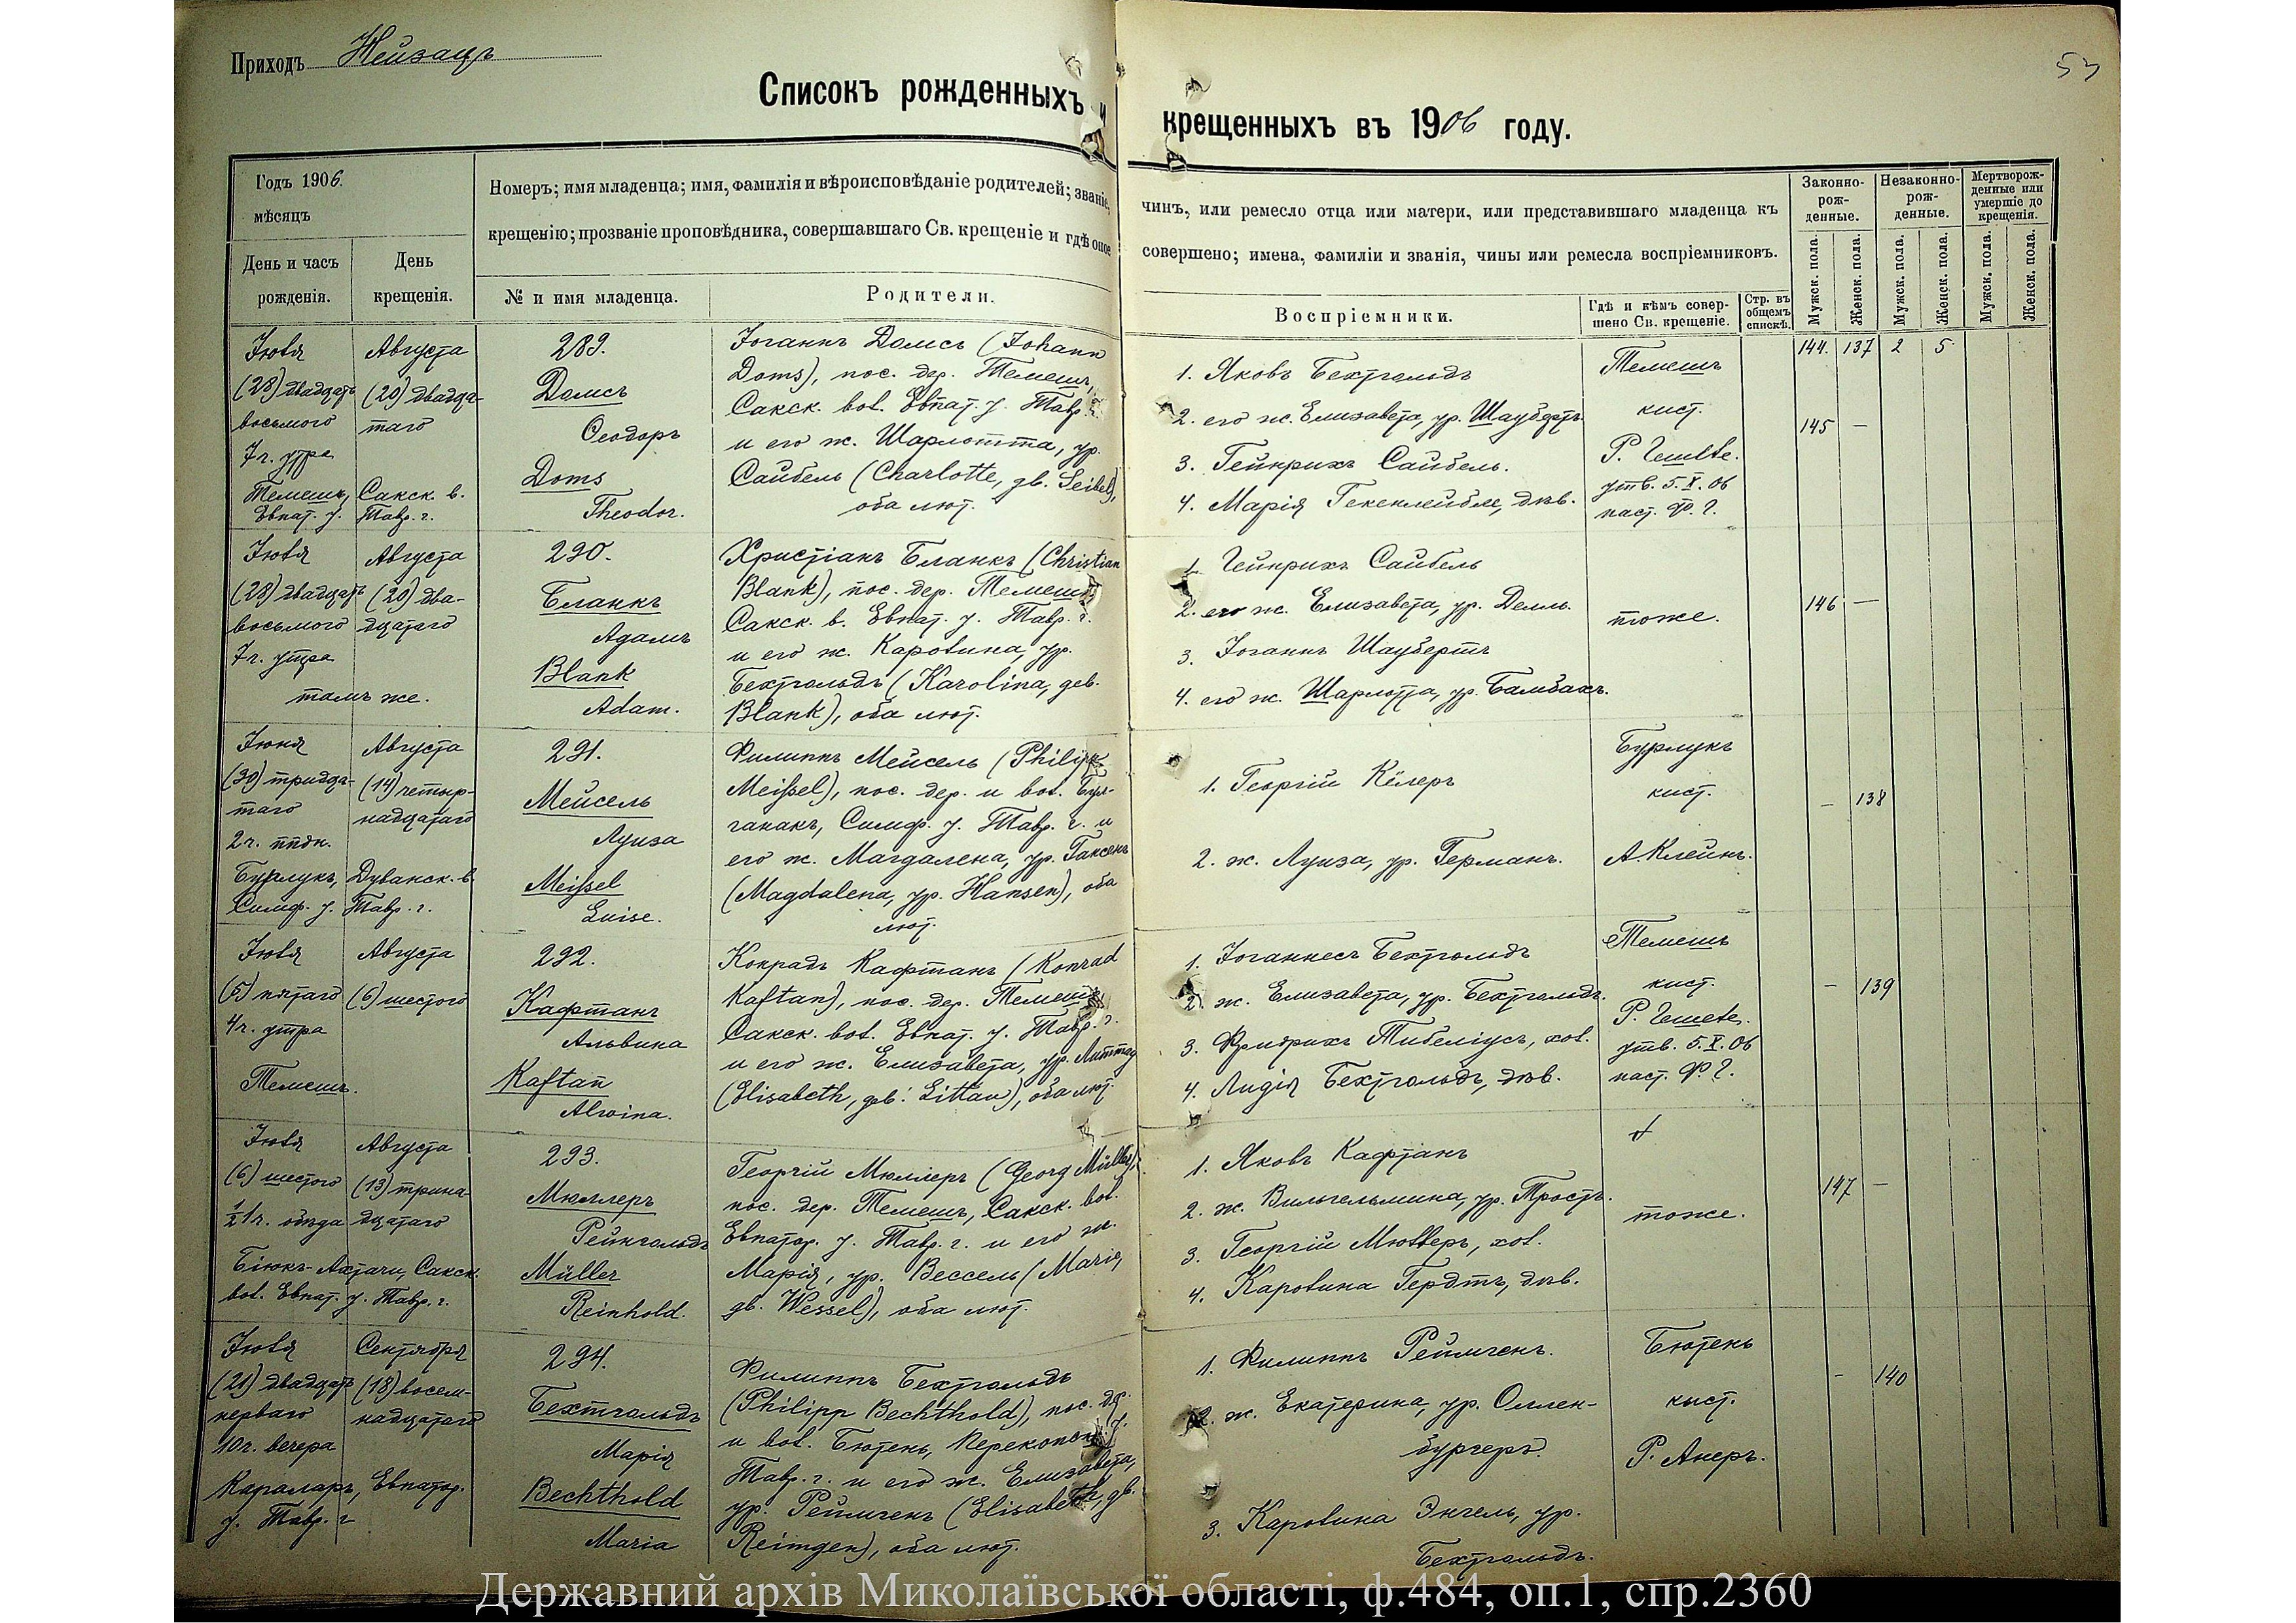 Приходъ Нейзацъ
53
Списокъ рожденныхъ и крещенныхъ въ 1906 году.
Годъ 1906.
мѣсяцъ
День и часъ рожденія.
День крещенія.
Номеръ; имя младенца; имя, фамилія и вѣроисповѣданіе родителей; званіе, чинъ, или ремесло отца или матери, или представившаго младенца къ
крещенію; прозваніе проповѣдника, совершавшаго Св. крещеніе и гдѣ оное совершено; имена, фамиліи и званія, чины или ремесла воспріемниковъ.
№ и имя младенца.
Родители.
Воспріемники.
Гдѣ и кѣмъ совершено Св. крещеніе.
Стр. въ общемъ спискѣ.
Законнорожденные.
Незаконнорожденные.
Мертворожденные или умершіе до крещенія.
Мужск. пола.
Женск. пола.
Мужск. пола.
Женск. пола.
Мужск. пола.
Женск. пола.
Іюля
(28) двадцать
восьмого
7 ч. утра
Темешъ, Сакск. в.
Евпат. у. Тавр. г.
Августа
(20) двадца-
таго
289.
Домсъ
Ѳеодоръ
Doms
Theodor.
Іоганнъ Домсъ (Johann
Doms), пос. дер. Темешъ,
Сакск. вол. Евпат. у. Тавр. г.
и его ж. Шарлотта, ур.
Сайбель (Charlotte, gb. Seibel),
оба лют.
1. Яковъ Бехтольдъ
2. его ж. Елизавета, ур. Шаубертъ
3. Гейнрихъ Сайбель.
4. Марія Гекенлейбле, дѣв.
Темешъ
кист.
утв. 5.X.06
паст. Ф. Г.
144. 137 2 5
145 —
Іюля
(28) двадцать
восьмого
7 ч. утра
тамъ же.
Августа
(20) два-
дцатаго
290.
Бланкъ
Адамъ
Blank
Adam.
Христіанъ Бланкъ (Christian
Blank), пос. дер. Темешъ,
Сакск. в. Евпат. у. Тавр. г.
и его ж. Каролина, ур.
Бехтольдъ (Karolina, geb.
Blank), оба лют.
1. Гейнрихъ Сайбель
2. его ж. Елизавета, ур. Делль.
3. Іоганнъ Шаубертъ
4. его ж. Шарлотта, ур. Бамбахъ.
тоже.
146 —
Іюня
(30) тридца-
таго
2 ч. ппдн.
Бурлукъ, Дуванск. в.
Симф. у. Тавр. г.
Августа
(14) четыр-
надцатаго
291.
Мейсель
Луиза
Meißel
Luise.
Филиппъ Мейсель (Philipp
Meißel), пос. дер. и вол. Бул-
ганакъ, Симф. у. Тавр. г. и
его ж. Магдалена, ур. Гансенъ
(Magdalena, ур. Hansen), оба
лют.
1. Георгій Кёлеръ
2. ж. Луиза, ур. Германъ.
Бурлукъ
кист.
А. Клейнъ.
— 138
Іюля
(5) пятаго
4 ч. утра
Темешъ.
Августа
(6) шестого
292.
Кафтанъ
Альвина
Kaftan
Alwina.
Конрадъ Кафтанъ (Konrad
Kaftan), пос. дер. Темешъ
Сакск. вол. Евпат. у. Тавр. г.
и его ж. Елизавета, ур. Литтау
(Elisabeth, geb: Littau), оба лют.
1. Іоганнесъ Бехтольдъ
2. ж. Елизавета, ур. Бехтольдъ.
3. Фридрихъ Тибеліусъ, хол.
4. Лидія Бехтольдъ, дѣв.
Темешъ
кист.
утв. 5.X.06
паст. Ф. Г.
— 139
Іюля
(6) шестого
½ 1 ч. обѣда
Біюкъ-Ахтачи, Сакск.
вол. Евпат. у. Тавр. г.
Августа
(13) трина-
дцатаго
293.
Мюллеръ
Рейнгольдъ
Müller
Reinhold.
Георгій Мюллеръ (Georg Müller),
пос. дер. Темешъ, Сакск. вол.
Евпатор. у. Тавр. г. и его ж.
Марія, ур. Вессель (Marie,
gb. Wessel), оба лют.
1. Яковъ Кафтанъ
2. ж. Вильгельмина, ур. Простъ.
3. Георгій Мюллеръ, хол.
4. Каролина Гердтъ, дѣв.
тоже.
147 —
Іюля
(21) двадцать
перваго
10 ч. вечера
Караларъ, Евпатор.
у. Тавр. г
Сентября
(18) восем-
надцатаго
294.
Бехтгольдъ
Марія
Bechthold
Maria
Филиппъ Бехтольдъ
(Philipp Bechthold), пос. др.
и вол. Бютень, Перекопск. у.
Тавр. г. и его ж. Елизавета,
ур. Реймгенъ (Elisabeth, gb.
Reimgen), оба лют.
1. Филиппъ Реймгенъ.
2. ж. Екатерина, ур. Оллен-
бургеръ.
3. Каролина Энгель, ур.
Бехтольдъ.
Бютень
кист.
Р. Анеръ.
- 140
Державний архів Миколаївської області, ф.484, оп.1, спр.2360